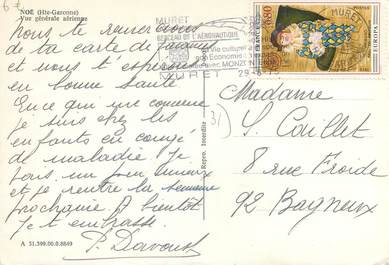 NOE (Hte-Garonne)
Vue générale aérienne
Nous te remercions
de ta carte de
et nous t'espérons
en bonne santé
En ce qui me concerne
je suis chez les
enfants en congé
de maladie. Je
vais un peu mieux
et je rentre la semaine
prochaine. A bientôt
Je t'embrasse
P. Davoust
A 31.399.00.0.8849
Repro. interdite
MURET
BERCEAU DE L'AÉRONAUTIQUE
MURET
MURET
0,80
FRANCE
EUROPA
31
Madame
S. Coullet
8 rue Froide
92 Bagneux